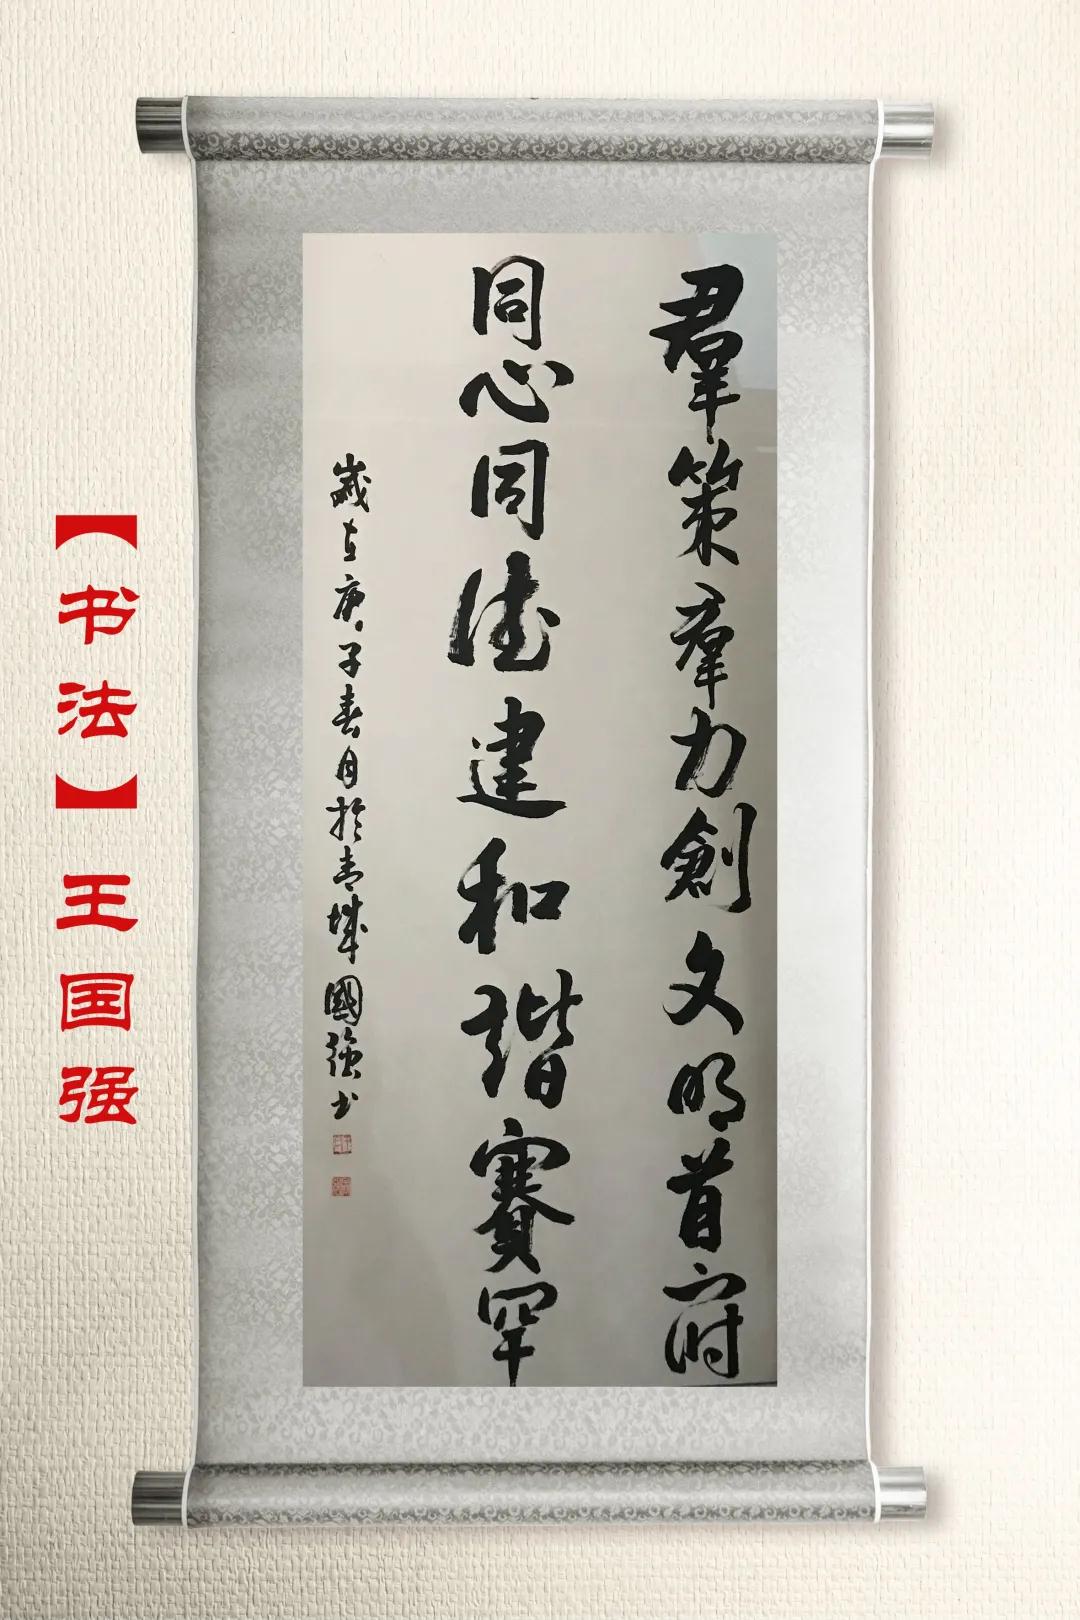 羣策羣力創文明首府
同心同德建和諧賽罕
歲在庚子春月於青城國強书
【书法】王国强